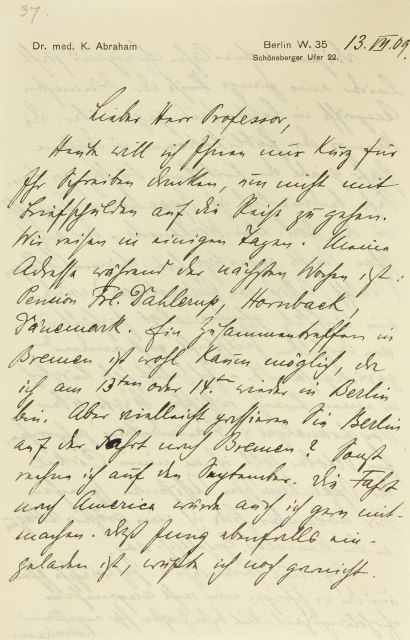 37.
Dr. med. K. Abraham
Berlin W. 35
Schöneberger Ufer 22.
13.VII.09.
Lieber Herr Professor,
Heute will ich Ihnen nur kurz für
Ihr Schreiben danken, um nicht mit
Briefschulden auf die Reise zu gehen.
Wir reisen in einigen Tagen. Meine
Adresse während der nächsten Wochen ist:
Pension Frl. Dahlerup, Hornbaek,
Dänemark. Ein Zusammentreffen in
Bremen ist wohl kaum möglich, da
ich am 13ten oder 14.ten wieder in Berlin
bin. Aber vielleicht passieren Sie Berlin
auf der Fahrt nach Bremen? Sonst
rechne ich auf den September. Die Fahrt
nach America würde auch ich gern mit-
machen. Daß Jung ebenfalls ein-
geladen ist, wußte ich noch garnicht.